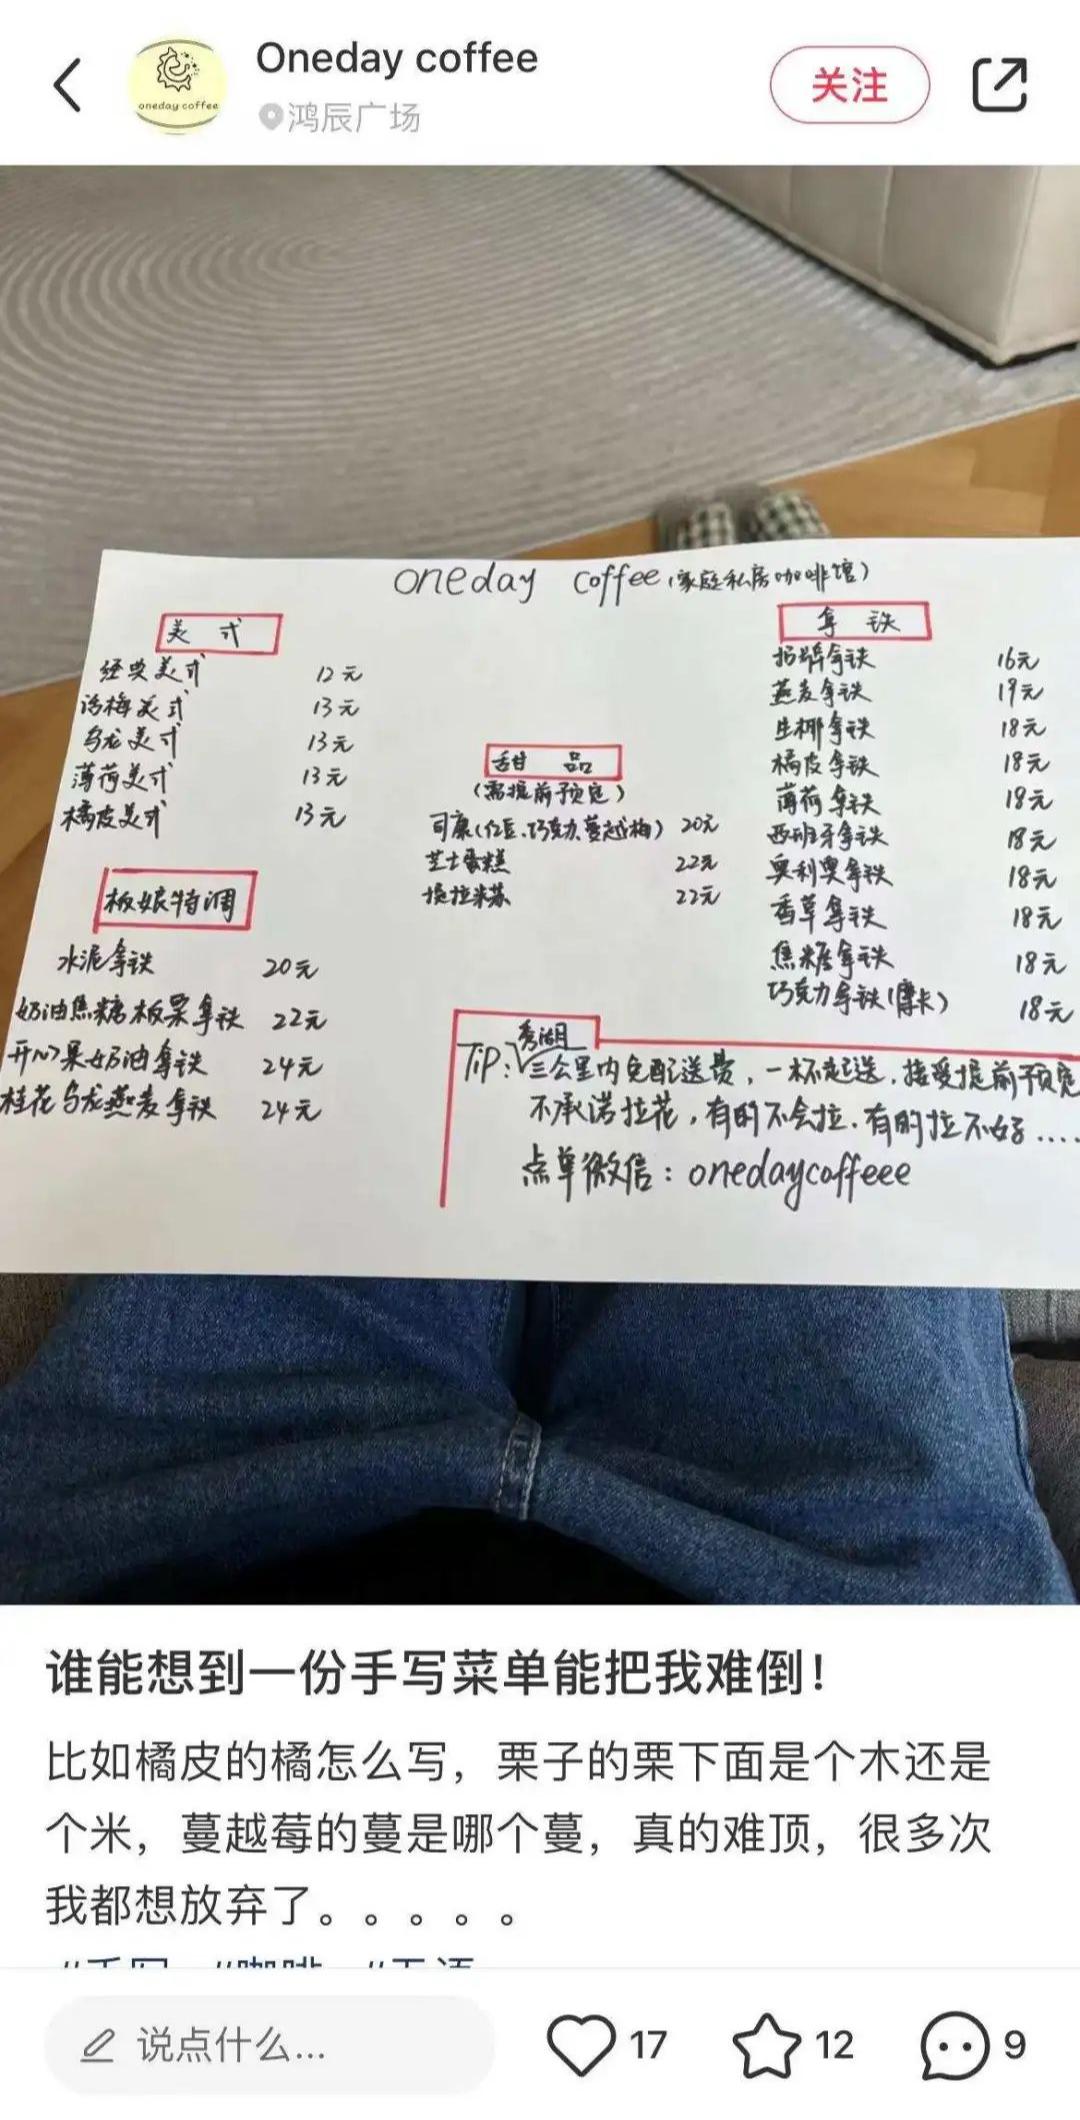 Oneday coffee
oneday coffee
鸿辰广场
关注
oneday coffee (家庭私房咖啡馆)
美式
经典美式 12元
话梅美式 13元
乌龙美式 13元
薄荷美式 13元
橘皮美式 13元
板娘特调
水泥拿铁 20元
奶油焦糖板栗拿铁 22元
开心果奶油拿铁 24元
桂花乌龙燕麦拿铁 24元
甜品
(需提前预定)
司康(红豆、巧克力、蔓越梅) 20元
芝士蛋糕 22元
提拉米苏 22元
拿铁
招牌拿铁 16元
燕麦拿铁 19元
生椰拿铁 18元
橘皮拿铁 18元
薄荷拿铁 18元
西班牙拿铁 18元
奥利奥拿铁 18元
香草拿铁 18元
焦糖拿铁 18元
巧克力拿铁(摩卡) 18元
秀湖
TiP:三公里内免配送费,一杯起送.接受提前预定
不承诺拉花,有的不会拉.有的拉不好....
点单微信:onedaycoffeee
谁能想到一份手写菜单能把我难倒!
比如橘皮的橘怎么写,栗子的栗下面是个木还是
个米,蔓越莓的蔓是哪个蔓,真的难顶,很多次
我都想放弃了。。。。。
#手写 #咖啡 #无语
说点什么...
17
12
9